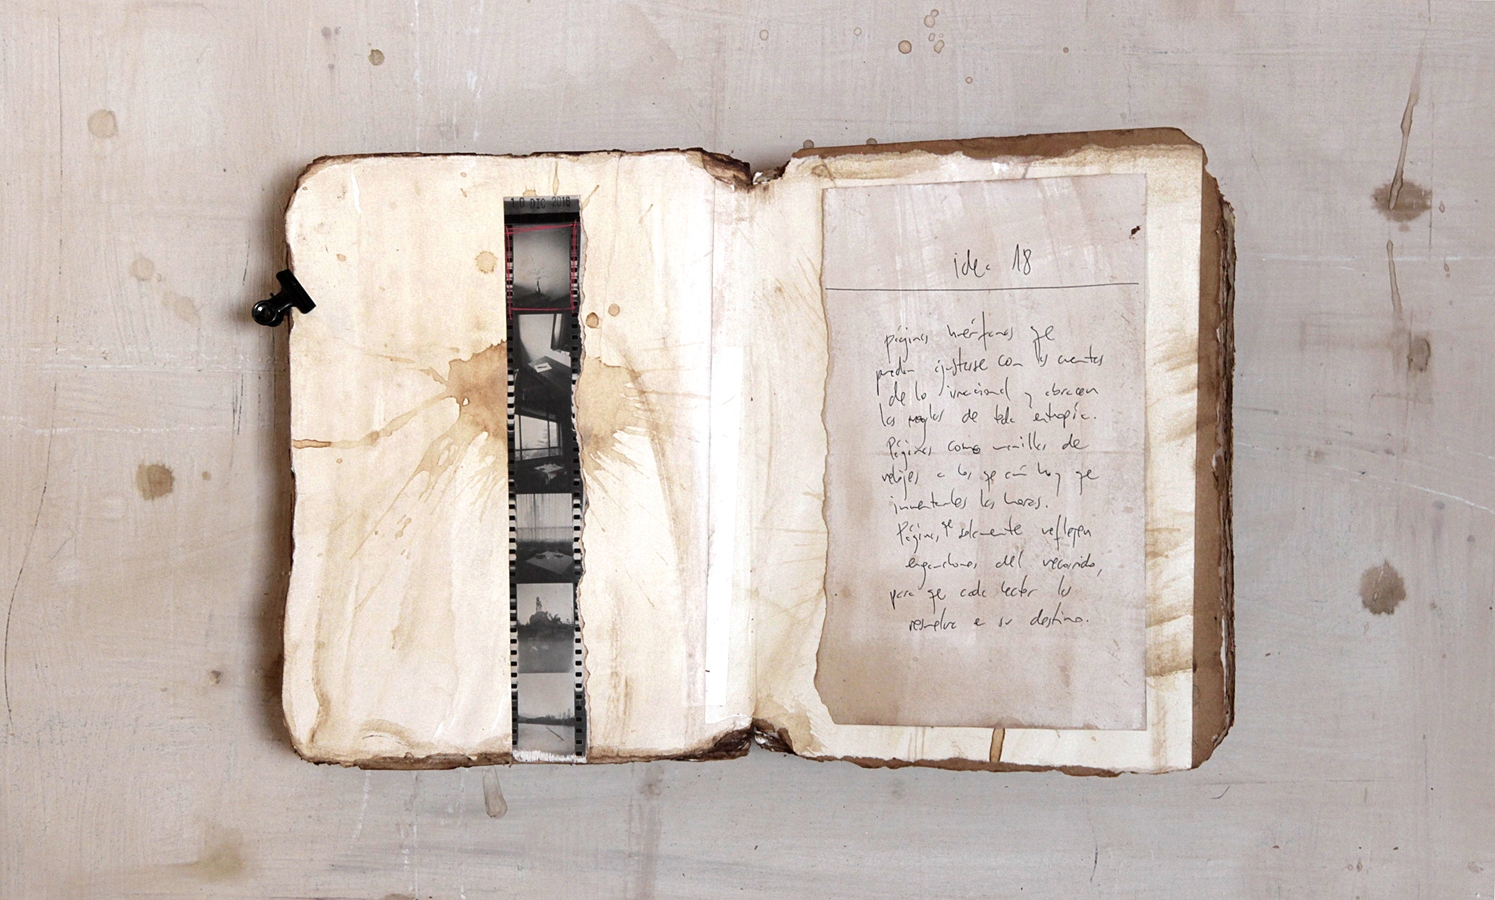 10 DIC 2016
idea 18
páginas huérfanas que
puedan ajustarse con las cuentas
de lo irracional y abracen
las reglas de toda entropía.
Páginas como manillas de
relojes a los que aún hay que
inventarles las horas.
Páginas que solamente reflejen
del recorrido,
para que cada lector lo
resuelva a su destino.